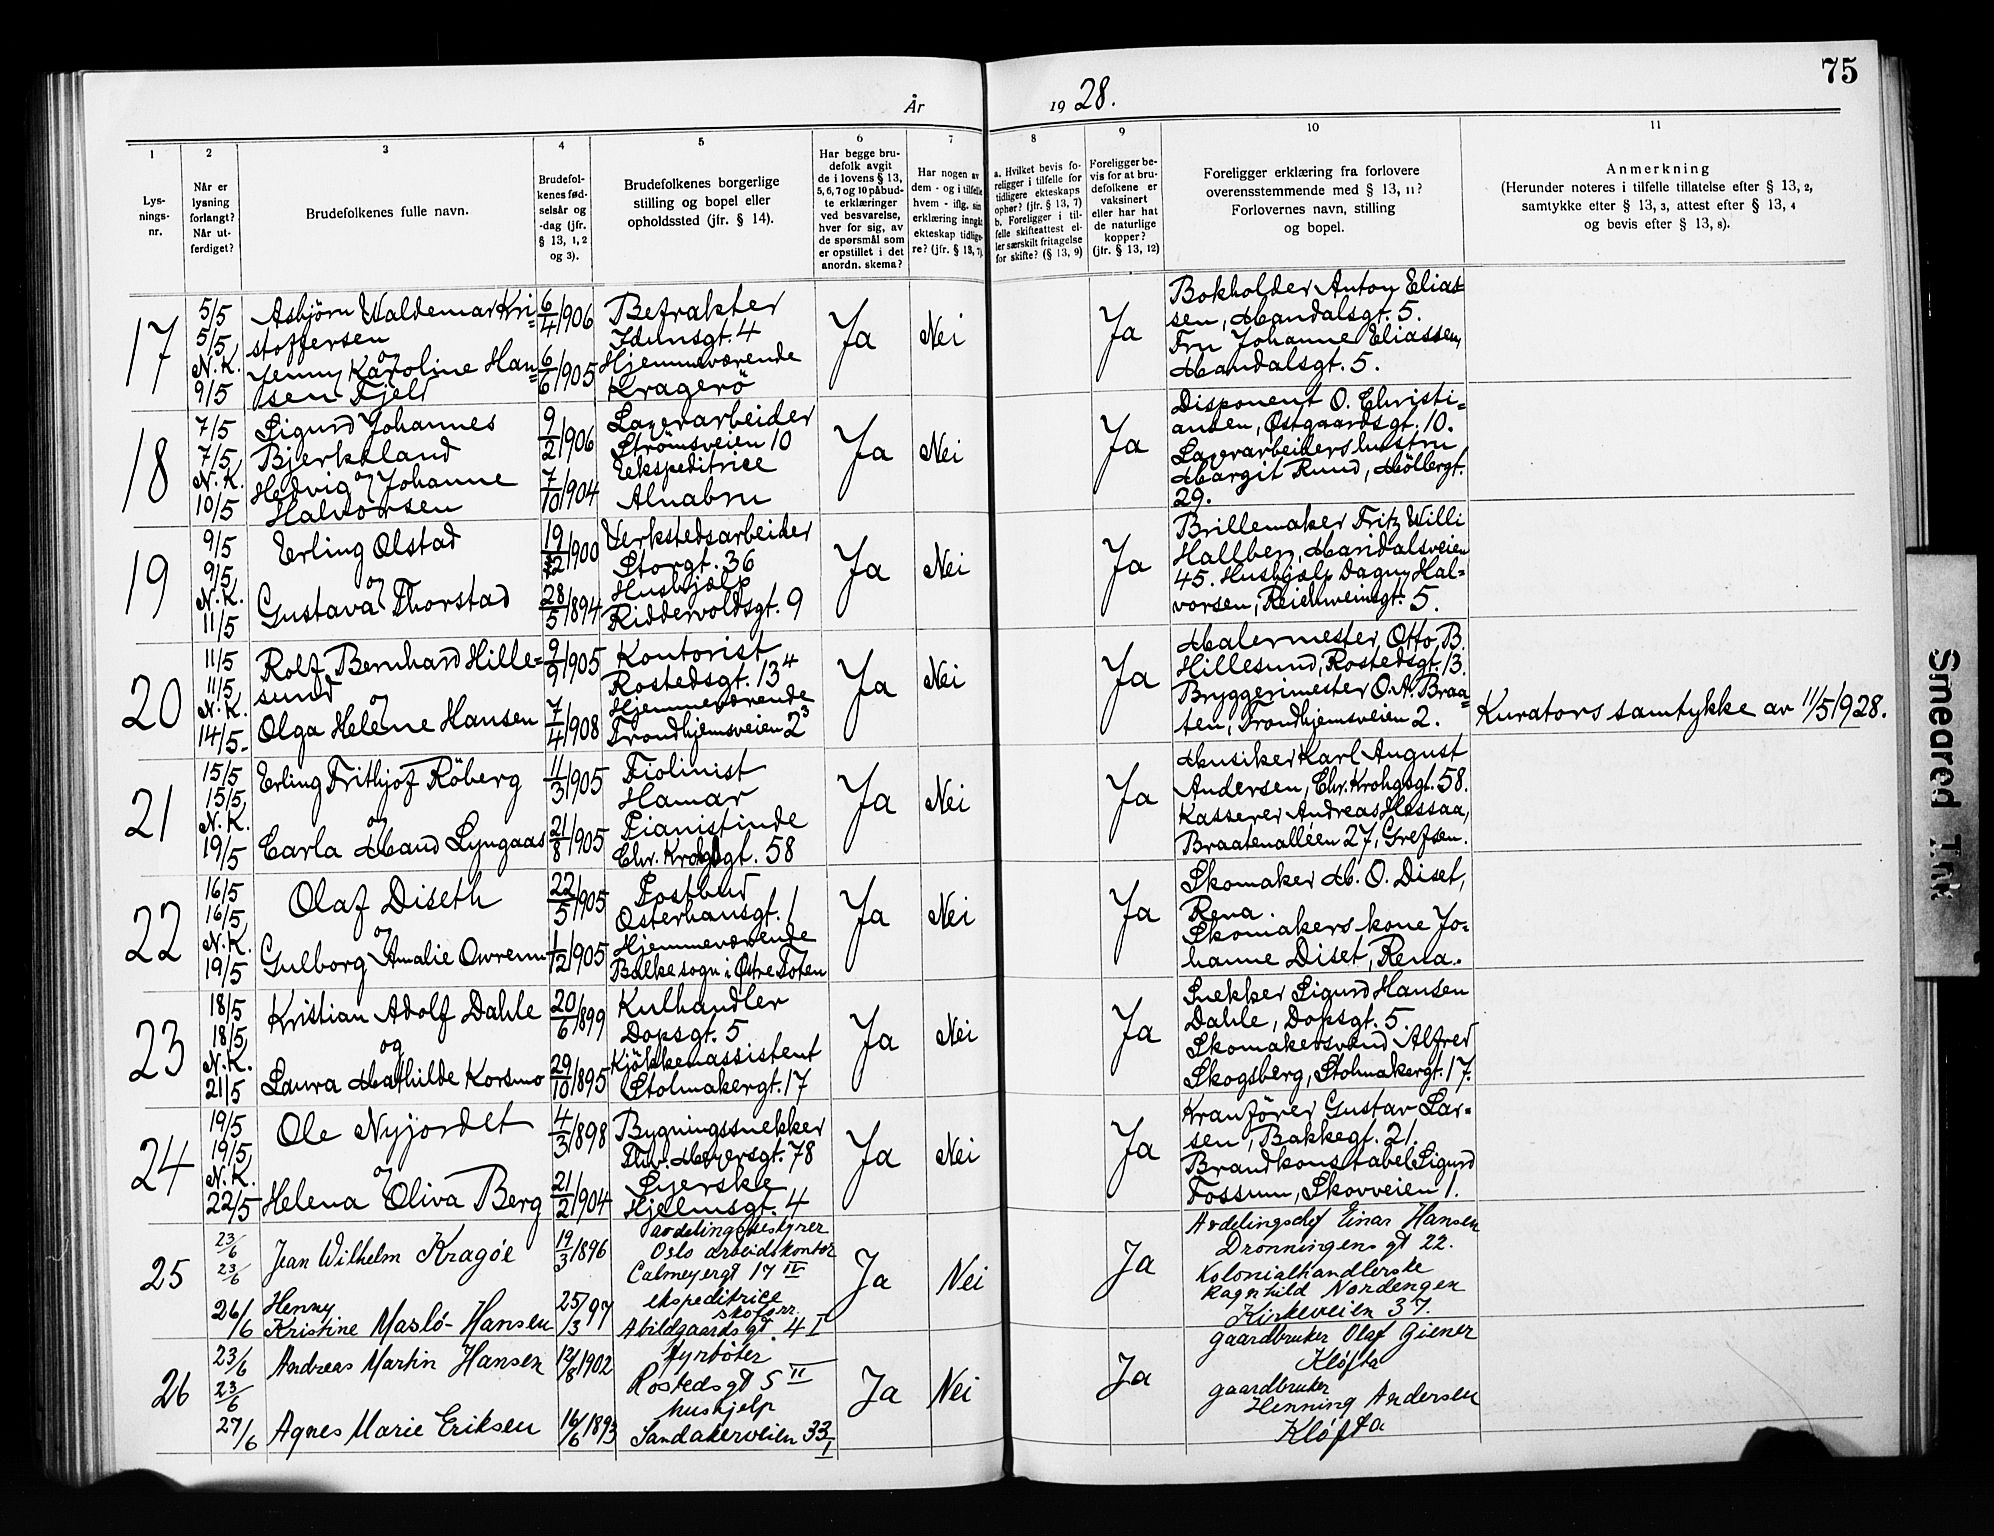 75
År 1928.
1
2
3
4
5
6
7
8
9
10
11
Lys-
nings-
nr.
Når er
lysning
forlangt?
Når ut-
ferdiget?
Brudefolkenes fulle navn.
Brudefol-
kenes fød-
selsår og
-dag (jfr.
§ 13, 1, 2
og 3).
Brudefolkenes borgerlige
stilling og bopel eller
opholdssted (jfr. § 14).
Har begge bru-
defolk avgit
de i lovens § 13,
5, 6, 7 og 10 påbud-
te erklæringer
ved besvarelse,
hver for sig, av
de spørsmål som
er opstillet i det
anordn. skema?
Har nogen av
dem - og i tilfelle
hvem - iflg. sin
erklæring inngått
ekteskap tidlige-
re? (jfr. § 13, 7)
a. Hvilket bevis fo-
religger i tilfelle for
tidligere ekteskaps
ophør? (jfr. § 13, 7)
b. Foreligger i til-
felle skifteattest el-
ler særskilt fritagelse
for skifte? (§ 13, 9)
Foreligger be-
vis for at bru-
defolkene er
vaksinert
eller har hat
de naturlige
kopper?
(jfr. § 13, 12)
Foreligger erklæring fra forlovere
overensstemmende med § 13, 11?
Forlovernes navn, stilling
og bopel.
Anmerkning
(Herunder noteres i tilfelle tillatelse efter § 13, 2,
samtykke efter § 13, 3, attest efter § 13, 4
og bevis efter § 13, 8).
17
5/5
5/5
N.K.
9/5
Asbjörn Waldemar Kri=
stoffersen
og
Jenny Karoline Han=
sen Fjeld
6/4 1906
6/6 1905
Befrakter
Idunsgt. 4
Hjemmeværende
Kragerö
Ja
Nei
Ja
Bokholder Anton Elias=
sen, Mandalsgt. 5.
Fru Johanne Eliassen,
Mandalsgt. 5.
18
7/5
7/5
N.K.
10/5
Sigurd Johannes
Bjerkeland
og
Hedvig Johanne
Halvorsen
9/2 1906
7/10 1904
Lagerarbeider
Strömsveien 10
Eekspeditrice
Alnabru
Ja
Nei
Ja
Disponent O. Christi=
ansen, Østgaardsgt. 10.
Lagerarbeiders hustru
Margit Rund, Möllergt.
29.
19
9/5
9/5
N.K.
11/5
Erling Olstad
og
Gustava Thorstad
19/12 1900
28/5 1894
Verkstedsarbeider
Storgt. 36
Hushjælp
Riddervoldsgt. 9
Ja
Nei
Ja
Brillemaker Fritz Willi
Hallberg, Maridalsveien
45. Hushjælp Dagny Hal=
vorsen, Reichweinsgt. 5.
20
11/5
11/5
N.K.
14/5
Rolf Bernhard Hille=
sund
og
Olga Helene Hansen
9/9 1905
7/4 1908
Kontorist
Rostedsgt. 13⁴
Hjemmeværende
Trondhjemsveien 2³
Ja
Nei
Ja
Malermester Otto B.
Hillesund, Rostedsgt. 13.
Bryggerimester O. A. Braa=
ten, Trondhjemsveien 2.
Kurators samtykke av 11/5 1928.
21
15/5
15/5
N.K.
19/5
Erling Frithjof Röberg
og
Carla Maud Lyngaas
11/3 1905
21/8 1905
Fiolinist
Hamar
Pianistinde
Chr. Krohgsgt. 58
Ja
Nei
Ja
Musiker Karl August
Andersen, Chr. Krohgsgt. 58.
Kasserer Andreas Hessaa,
Braatenalléen 27, Grefsen.
22
16/5
16/5
N.K.
19/5
Olaf Diseth
og
Gulborg Amalie Owrenn
22/5 1905
1/12 1905
Postbud
Osterhausgt. 1
Hjemmeværende
Balke sogn i Østre Toten
Ja
Nei
Ja
Skomaker M. O. Diset,
Rena.
Skomakers kone Jo=
hanne Diset, Rena.
23
18/5
18/5
N.K.
21/5
Kristian Adolf Dahle
og
Laura Mathilde Korsmo
20/6 1899
29/10 1895
Kulhandler
Dopsgt. 5
Kjökkenassistent
Stolmakergt. 17
Ja
Nei
Ja
Snekker Sigurd Hansen
Dahle, Dopsgt. 5.
Skomakersvend Alfred
Skogsberg, Stolmakergt. 17.
24
19/5
19/5
N.K.
22/5
Ole Nyjordet
og
Helena Oliva Berg
4/3 1898
21/2 1904
Bygningssnekker
Thv. Meyersgt. 78
Syerske
Hjelmsgt. 4
Ja
Nei
Ja
Kranförer Gustav Lar=
sen, Bakkegt. 21.
Brandkonstabel Sigurd
Fossum, Skovveien 1.
25
23/6
23/6
26/6
Jean Wilhelm Kragöe
Henny
Kristine Masló-Hansen
19/3 1896
25/3 97
avdelingsbestyrer
Oslo arbeidskontor
Calmeyergt 17 IV
ekspeditrice
skoforr.
Abildgaardsgt. 4 I
Ja
Nei
Ja
Avdelingschef Einar Hansen
Dronningens gt 22.
Kolonialhandlerske
Ragnhild Nordengen
Kirkeveien 37.
26
23/6
23/6
27/6
Andreas Martin Hansen
Agnes Marie Eriksen
12/8 1902
16/6 1893
fyrböter
Rostedsgt 5 II
hushjelp
Sandakerveien 33 I
Ja
Nei
Ja
gaardbruker Olaf Giener
Kløfta
gaardbruker
Henning Andersen
Kløfta
Smeared Ink